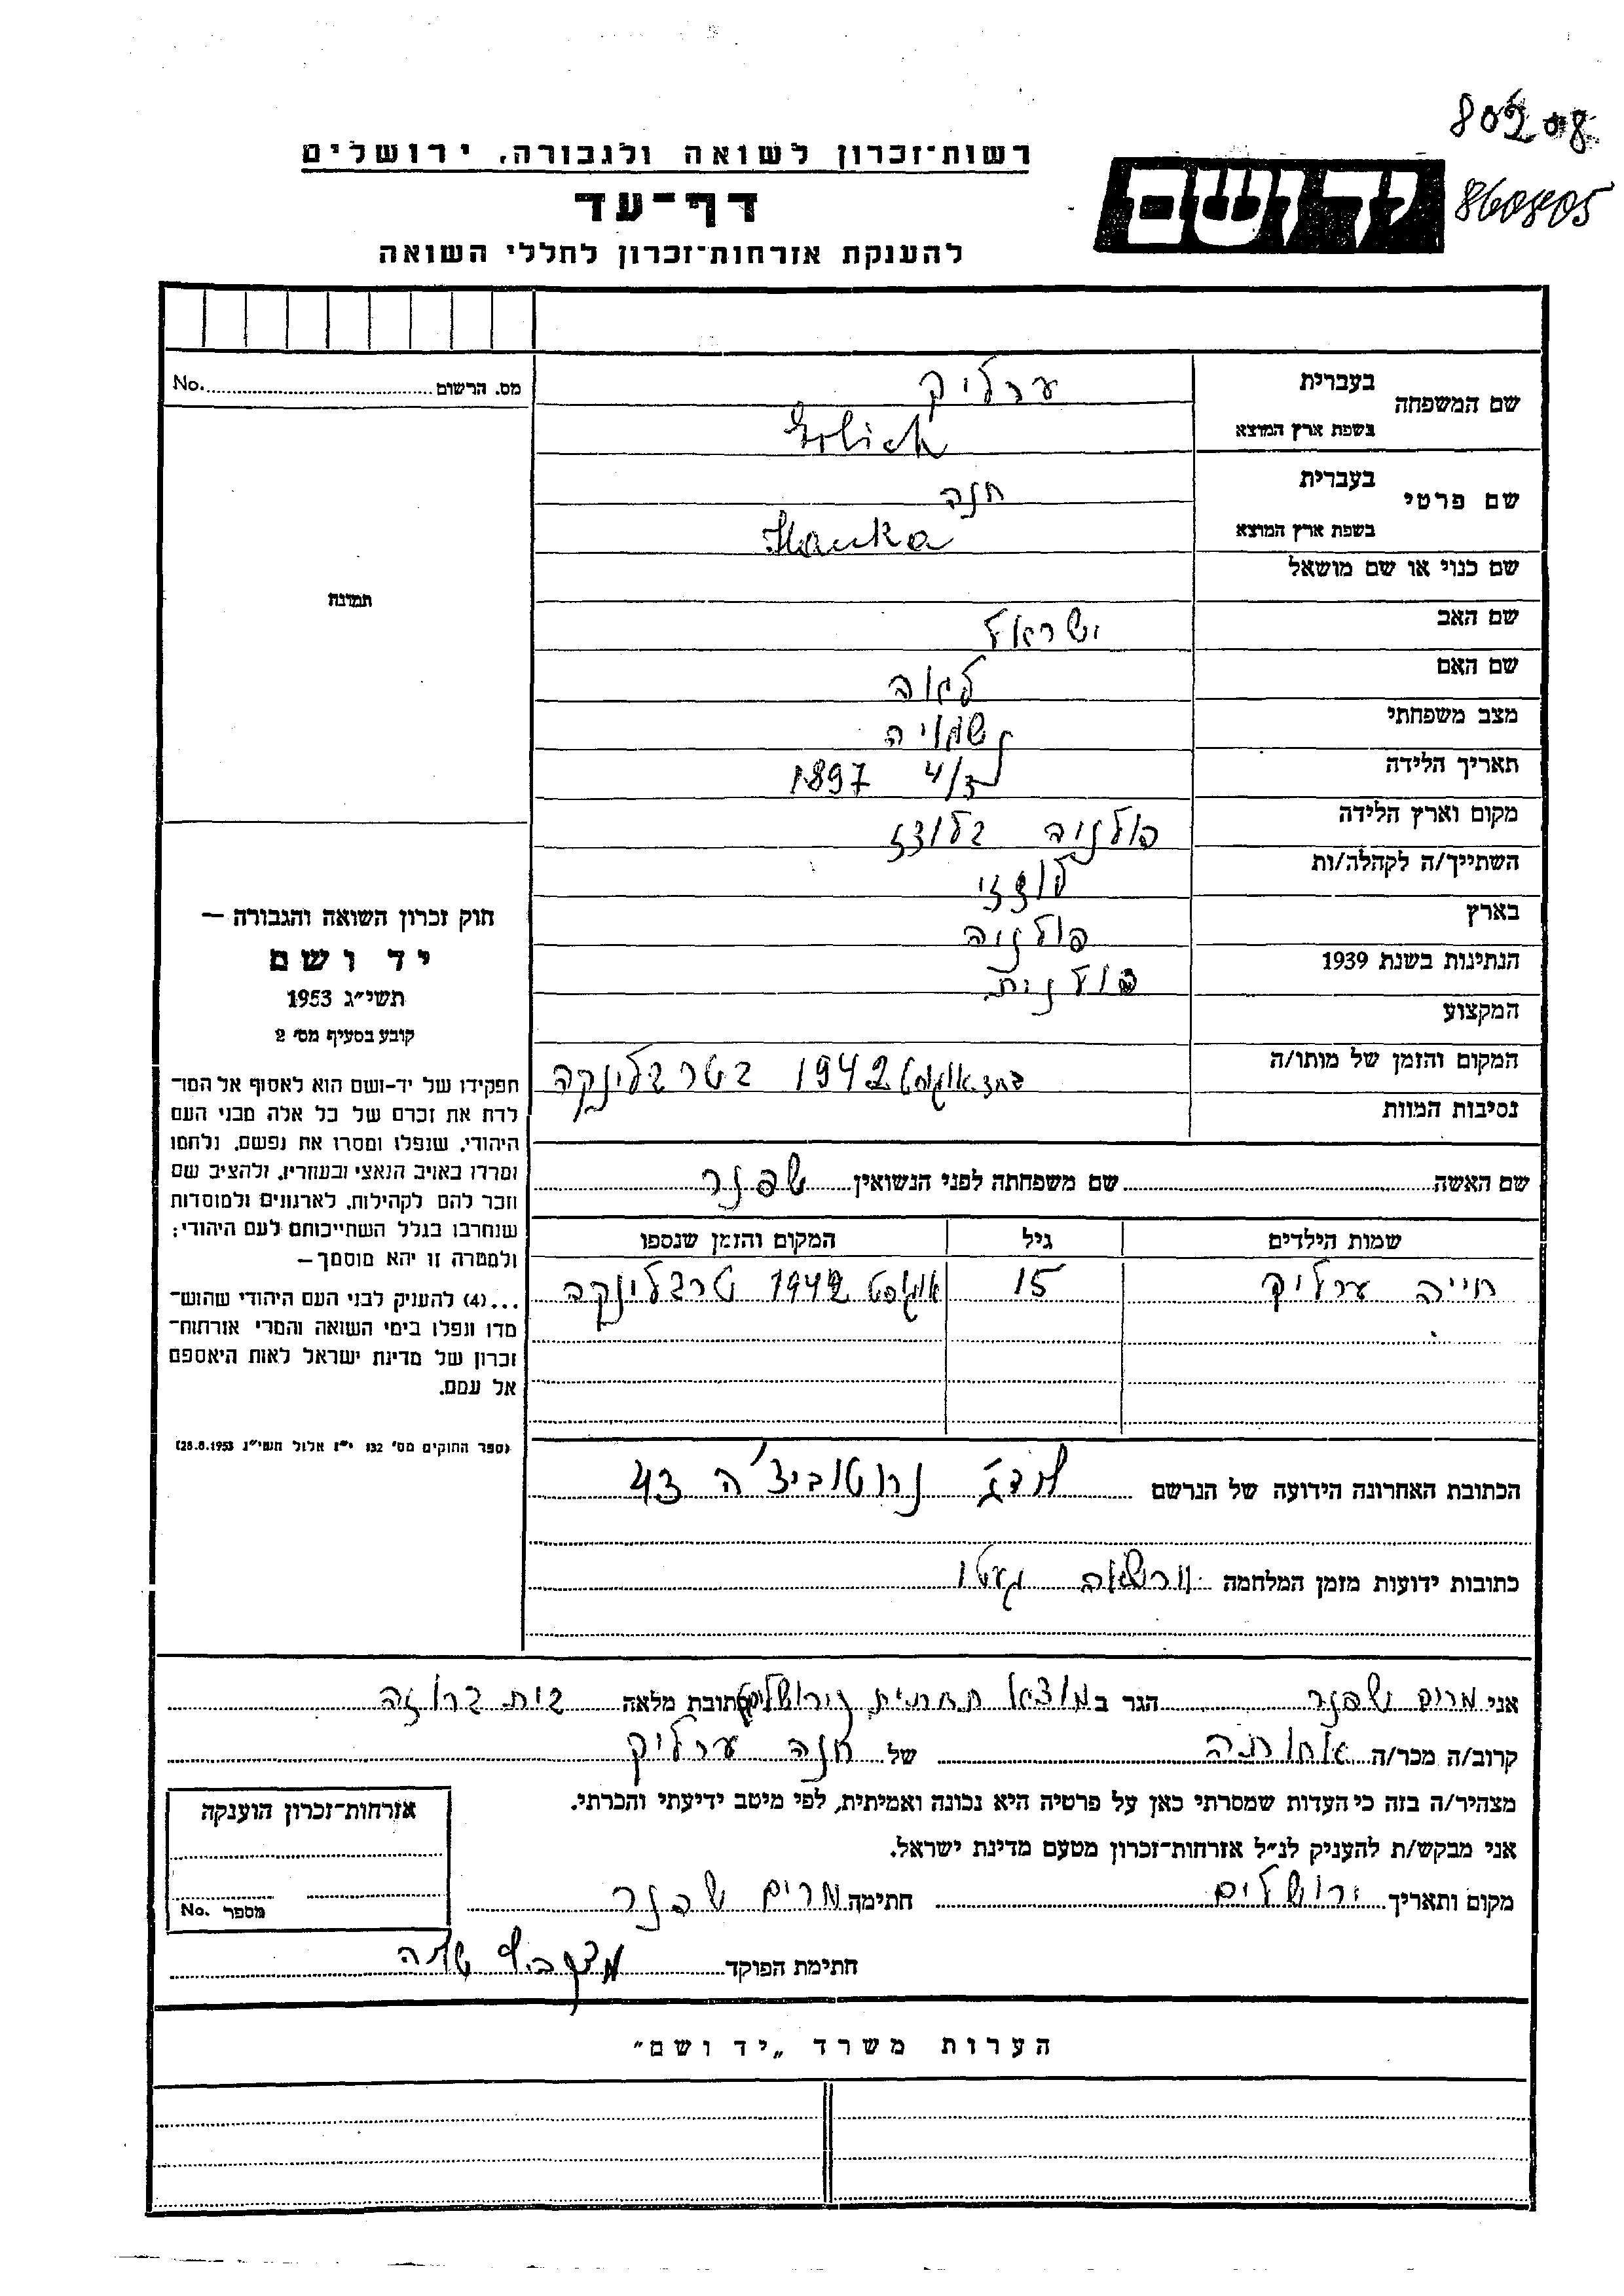 80208
860805
רשות־זכרון לשואה ולגבורה, ירושלים
יד ושם
דף־עד
להענקת אזרחות־זכרון לחללי השואה
מס. הרשום No.
שם המשפחה
בעברית ערליק
בשפת ארץ המוצא Erlich
שם פרטי
בעברית חנה
בשפת ארץ המוצא Hanka
שם כנוי או שם מושאל
תמונה
שם האב ישראל
שם האם לאה
מצב משפחתי נשואיה
תאריך הלידה 1897
מקום וארץ הלידה פולניה בלודז
השתייך/ה לקהלה/ות
בארץ פולניה
הנתינות בשנת 1939 פולנית
המקצוע
המקום והזמן של מותו/ה אוגוסט 1942 בטרבלינקה
נסיבות המוות
שם האשה שם משפחתה לפני הנשואין שפנר
שמות הילדים גיל המקום והזמן שנספו
חייה ערליק 15 אוגוסט 1942 טרבלינקה
חוק זכרון השואה והגבורה –
יד ושם
תשי״ג 1953
קובע בסעיף מס׳ 2
תפקידו של יד-ושם הוא לאסוף אל המו־
לדת את זכרם של כל אלה מבני העם
היהודי, שנפלו ומסרו את נפשם, נלחמו
ומרדו באויב הנאצי ובעוזריו, ולהציב שם
וזכר להם לקהילות, לארגונים ולמוסדות
שנחרבו בגלל השתייכותם לעם היהודי;
ולמטרה זו יהא מוסמך –
...(4) להעניק לבני העם היהודי שהוש־
מדו ונפלו בימי השואה והמרי אזרחות־
זכרון של מדינת ישראל לאות היאספם
אל עמם.
(ספר החוקים מס׳ 132 י״ז אלול תשי״ג 28.8.1953)
הכתובת האחרונה הידועה של הנרשם לודז נרוטוביצ'ה 43
כתובות ידועות מזמן המלחמה וורשאה געטו
אני מרים שפנר הגר ב מוצא תחתית כתובת מלאה בית ברוזה
קרוב/ה מכר/ה אחותה של חנה ערליק
מצהיר/ה בזה כי העדות שמסרתי כאן על פרטיה היא נכונה ואמיתית, לפי מיטב ידיעתי והכרתי.
אני מבקש/ת להעניק לנ״ל אזרחות־זכרון מטעם מדינת ישראל.
מקום ותאריך ירושלים חתימה מרים שפנר
חתימת הפוקד
אזרחות־זכרון הוענקה
מספר No.
הערות משרד „יד ושם״